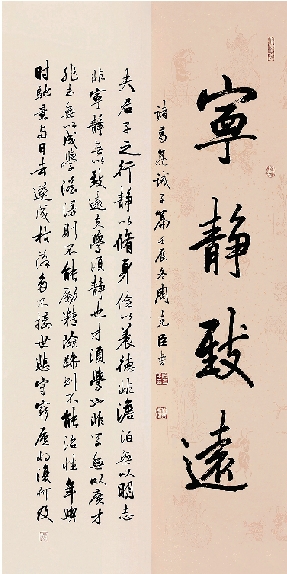 寧靜致遠
諸葛亮誡子篇壬辰冬周克臣書
夫君子之行靜以脩身儉以養德非澹泊無以明志
非寧靜無以致遠夫學須靜也才須學也非學無以廣才
非志無以成學滛漫則不能勵精險躁則不能治性年與
時馳意與日去遂成枯落多不接世悲守窮廬將復何及